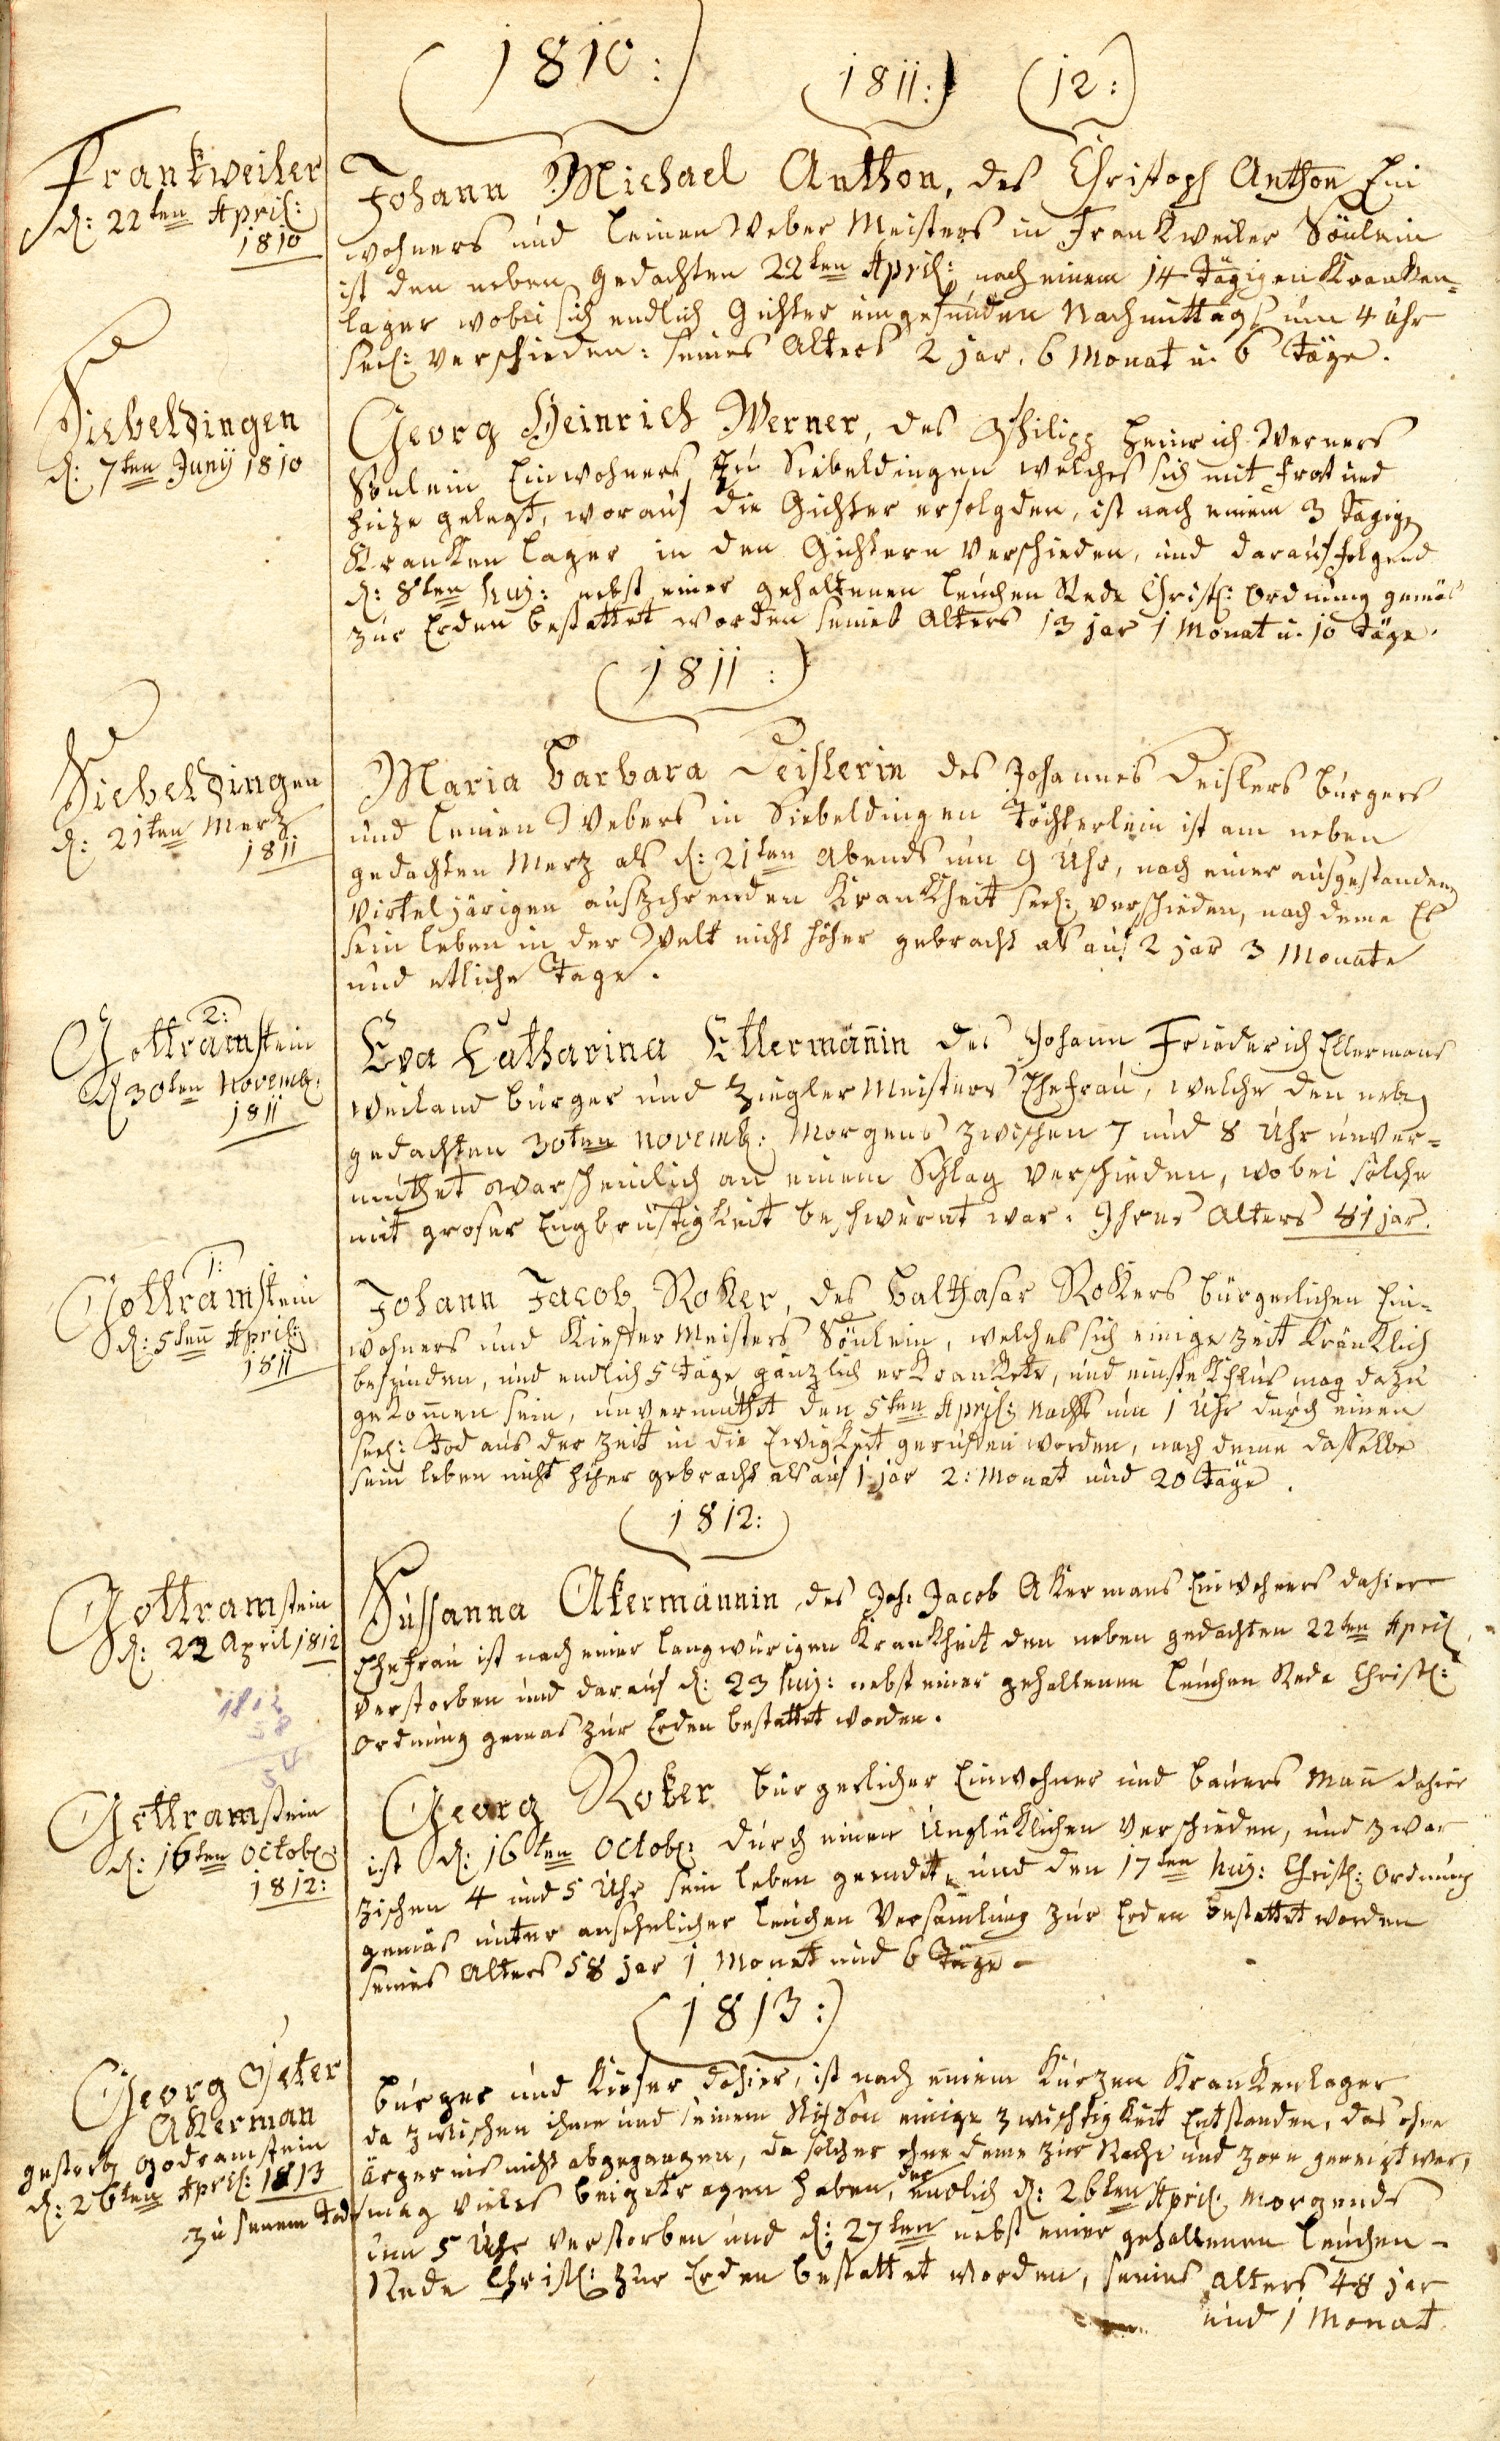 (1810:) (1811:) (12:)
Frankweiler
d: 22ten April:
1810
Johann Michael Anthon, des Christoph Anthon Ein
wohners und leinen Weber Meisters in Frankweiler Sönlein
ist den neben gedachten 22ten April: nach einem 14 tägigen Kranken=
lager wobei sich endlich Gichter eingefunden Nachmittags um 4 Uhr
seel: verschieden: seines Alters 2 jar, 6 Monat u. 6 Täge.
Siebeldingen
d: 7ten Junij 1810
Georg Heinrich Werner, des Philipp Heinrich Werners
Sönlein Einwohners zu Siebeldingen welches sich mit frost und
hize gelegt, worauf die Gichter erfolgden, ist nach einem 3 tägigen
Kranken lager in den Gichtern verschieden, und darauf folgend
d: 8ten huj: nebst einer gehaltenen leichen Rede Christl: Ordnung gemäs
zur Erden bestattet worden seines Alters 13 jar 1 Monat u. 10 täge.
(1811:)
Siebeldingen
d: 21ten Merz
1811
Maria Barbara Deislerin des Johannes Deislers bürgers
und leinen Webers in Siebeldingen Töchterlein ist am neben
gedachten Merz als d: 21ten Abends um 9 Uhr, nach einer ausgestanden
virtel järigen auszehrenden Krankheit seel: verschieden, nach deme Es
sein leben in der Welt nicht höher gebracht als auf 2 jar 3 Monate
und etliche Tage.
2:
Gottramstein
d 30ten Novemb:
1811
Eva Catharina Ellermännin des Johann Friederich Ellermans
weiland bürger und Ziegler Meisters Ehefrau, welche den neben
gedachten 30ten Novemb: Morgens zwischen 7 und 8 Uhr unver=
muthet warscheinlich an einem Schlag verschieden, wobei solche
mit groser Engbrüstigkeit beschwert war. Ihres Alters 81 jar.
1:
Gottramstein
d: 5tenn April:
1811
Johann Jacob Roker, des Balthasar Rokers bürgerlichen Ein=
wohners und Kieffer Meisters Sönlein, welches sich einige Zeit Kränklich
befunden, und endlich 5 täge gänzlich erkrankete, und mag dazu
gekommen sein, unvermuthet den 5ten April: Nachts um 1 Uhr durch einen
seel: Tod aus der Zeit in die Ewigkeit geruffen worden, nach deme dasselbe
sein leben nicht höher gebracht als auf 1 jar 2: Monat und 20 Täge.
(1812:)
Gottramstein
d: 22 April 1812
1812
58
54
Sussanna Akermännin des Joh. Jacob Akermans Einwohners dahier
Ehefrau ist nach einer langwürigen Krankheit den neben gedachten 22ten April
verstorben und darauf d: 23 huj: nebst einer gehaltenen leichen Rede Christl:
Ordnung gemäs zur Erden bestattet worden.
Gottramstein
d: 16ten Octob:
1812:
Georg Roker bürgerlicher Einwohner und bauers Mann dahier
ist d: 16ten Octob: durch einen Unglüklichen verschieden, und zwar
zischen 4 und 5 Uhr sein leben geendet, und den 17ten huj: Christl: Ordnung
gemäs unter ansehnlicher leichen Versamlung zur Erden bestattet worden
seines Alters 58 jar 1 Monat und 6 Täge.
(1813:)
Georg Peter
Akerman
gestorb Godramstein
d: 26ten April: 1813
zu seinem Tod
bürger und Kiefer dahier, ist nach einem Kurzen Krankenlager
da zwischen ihme und seinem Son einige zwischtigkeit Entstanden, das ohne
ärgernis nicht abgegangen, da solcher ohne deme zur Rache und zorn geneigt war,
mag vieles beigetragen haben, der endlich d: 26ten April: Morgends
um 5 Uhr verstorben und d: 27ten nebst einer gehaltenen leichen -
Rede Christl: zur Erden bestattet worden, seines alters 48 jar
und 1 Monat.